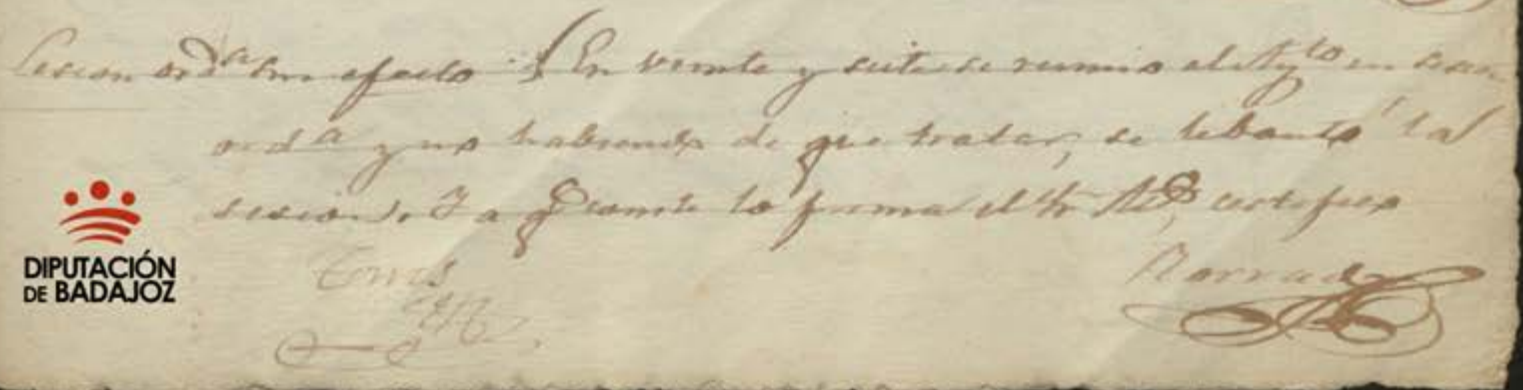 Sesion ordª sin efecto § En veinte y siete se reunio el Aytº en sesion
ordª y no habiendo de que tratar, se lebantó la
sesion. Y a q conste lo firma el Sr Alcᵈ, certifico
DIPUTACIÓN
DE BADAJOZ